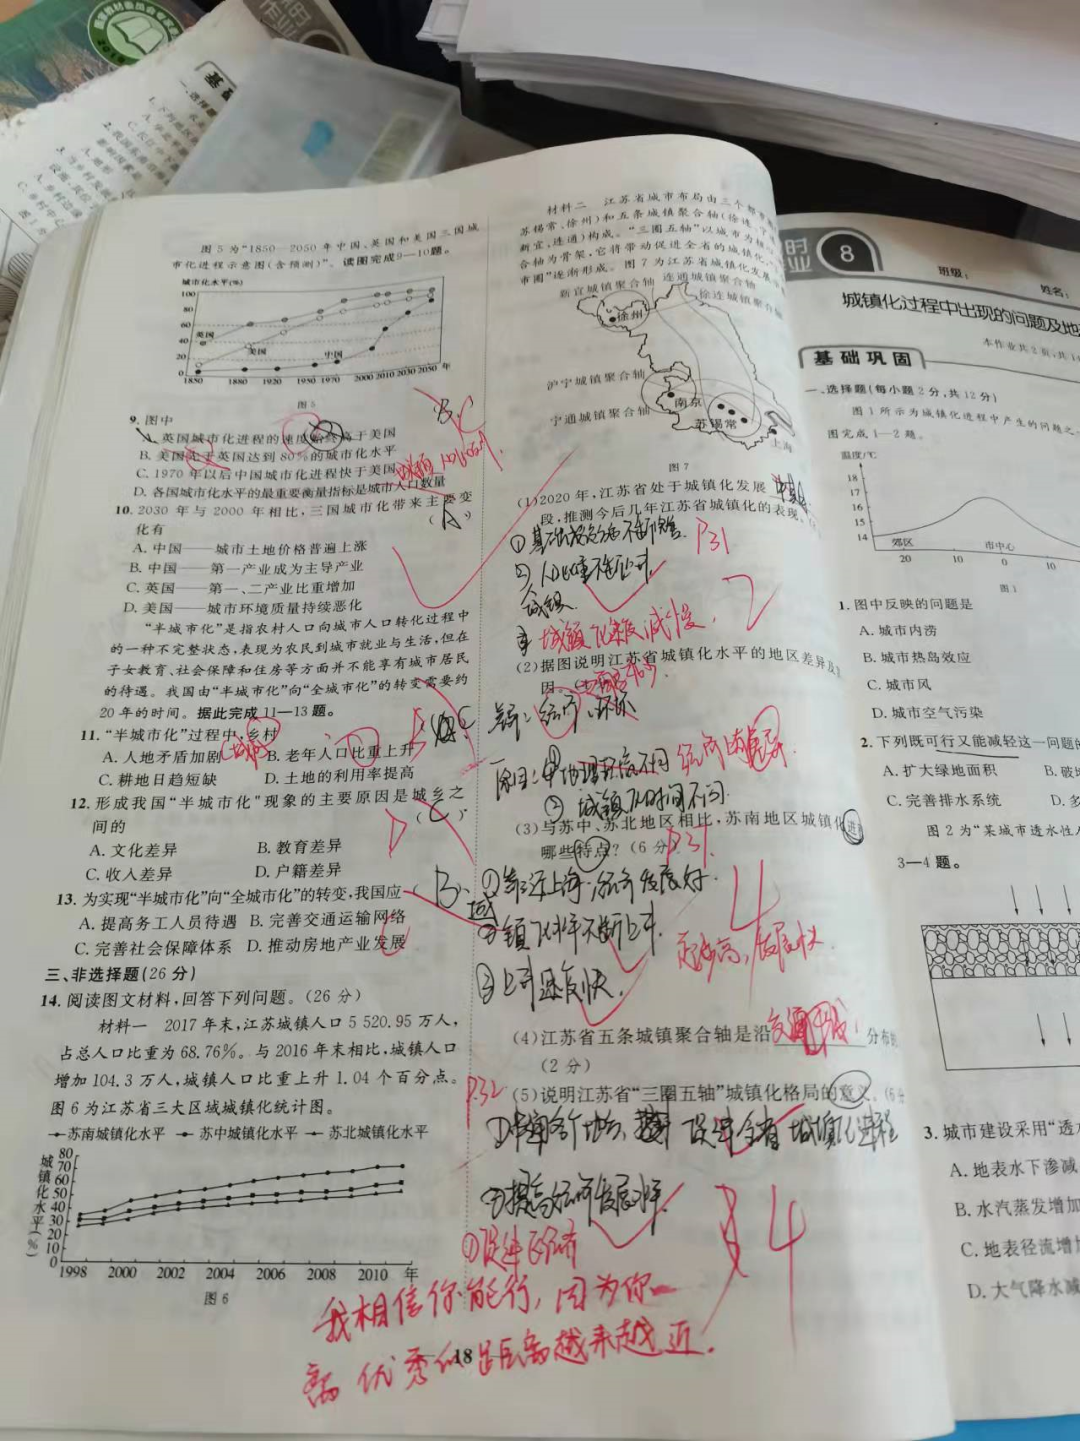 图5为“1850—2050年中国、英国和美国三国城
市化进程示意图(含预测)”。读图完成9—10题。
城市化水平(%)
100
80
60
40
20
0
英国
美国
中国
1850
1880
1920
1950
1970
2000 2010 2030 2050 年
图5
9.图中
A.英国城市化进程的速度始终高于美国
B.美国先于英国达到80%的城市化水平
C.1970年以后中国城市化进程快于美国
D.各国城市化水平的最重要衡量指标是城市人口数量
10.2030年与2000年相比,三国城市化带来主要变
化有
(A)
A.中国——城市土地价格普遍上涨
B.中国——第一产业成为主导产业
C.英国——第一、二产业比重增加
D.美国——城市环境质量持续恶化
“半城市化”是指农村人口向城市人口转化过程中
的一种不完整状态,表现为农民到城市就业与生活,但在
子女教育、社会保障和住房等方面并不能享有城市居民
的待遇。我国由“半城市化”向“全城市化”的转变需要约
20年的时间。据此完成11—13题。
11.“半城市化”过程中,乡村
A.人地矛盾加剧
B.老年人口比重上升
C.耕地日趋短缺
D.土地的利用率提高
12.形成我国“半城市化”现象的主要原因是城乡之
间的
(C)
A.文化差异
B.教育差异
C.收入差异
D.户籍差异
13.为实现“半城市化”向“全城市化”的转变,我国应
B
A.提高务工人员待遇 B.完善交通运输网络
C.完善社会保障体系 D.推动房地产业发展
三、非选择题(26分)
14.阅读图文材料,回答下列问题。(26分)
材料一 2017年末,江苏城镇人口5 520.95万人,
占总人口比重为68.76%。与2016年末相比,城镇人口
增加104.3万人,城镇人口比重上升1.04个百分点。
图6为江苏省三大区域城镇化统计图。
苏南城镇化水平 苏中城镇化水平 苏北城镇化水平
城镇化水平(%)
80
70
60
50
40
30
20
10
0
1998 2000 2002 2004 2006 2008 2010 年
图6
材料二 江苏省城市布局由三个都市
苏锡常、徐州)和五条城镇聚合轴(徐连、宁
新宜、连通)构成。“三圈五轴”以城市为
合轴为骨架,它将带动促进全省的城镇化,
市圈”逐渐形成。图7为江苏省城镇化发展
新宜城镇聚合轴 连通城镇聚合轴
徐连城镇聚合轴
徐州
沪宁城镇聚合轴
宁通城镇聚合轴
南京
苏锡常
上海
图7
(1)2020年,江苏省处于城镇化发展
段,推测今后几年江苏省城镇化的表现。
P31
城镇化速度减慢
2
(2)据图说明江苏省城镇化水平的地区差异及
因。
差异:经济、环境
原因:①地理环境不同
经济的差异
(3)与苏中、苏北地区相比,苏南地区城镇化进
哪些特点?(6分)
P31
①靠近上海,经济发展好
②城镇化水平不断上升.
③上升速度快.
4
(4)江苏省五条城镇聚合轴是沿交通干线分布的
(2分)
P32
(5)说明江苏省“三圈五轴”城镇化格局的意义。(6分
促进全省城镇化进程
②提高经济发展水平.
①促进区经济
4
我相信你能行,因为你
离优秀的距离越来越近.
18
8
班级:
姓名:
城镇化过程中出现的问题及地
本作业共2页,共1
基础巩固
一、选择题(每小题2分,共12分)
图1所示为城镇化进程中产生的问题之
图完成1—2题。
温度/℃
18
17
16
15
14
郊区
市中心
20 10 0 10
图1
1.图中反映的问题是
A.城市内涝
B.城市热岛效应
C.城市风
D.城市空气污染
2.下列既可行又能减轻这一问题的
A.扩大绿地面积
B.破
C.完善排水系统
D.多
图2为“某城市透水性
3—4题。
3.城市建设采用“透
A.地表水下渗减
B.水汽蒸发增加
C.地表径流增
D.大气降水减